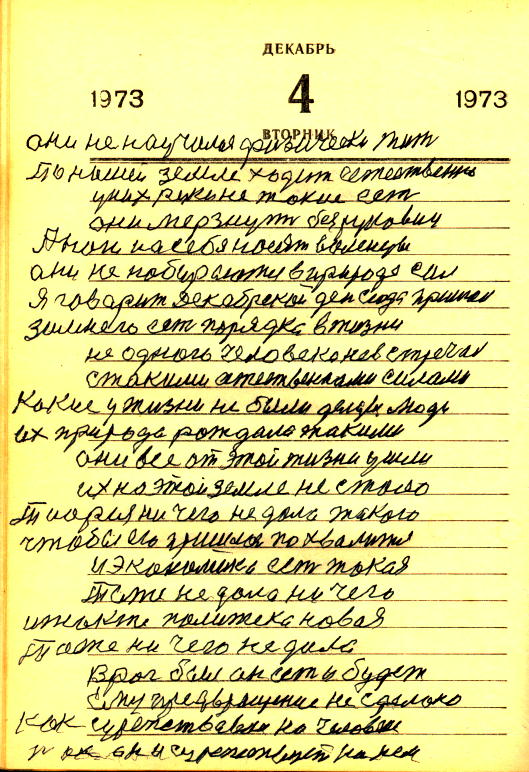 ДЕКАБРЬ
1973 4 1973
ВТОРНИК
они не научился физически жит
По нашей земле ходит естественно
у них такие ест
они мерзнут без рукавиц
А на себя носят валенцы
они не побирают в природе сил
Я говарит декабрской ден сюда пришел
зимнего ест порядка в жизни
не одного человека не встречал
стакими естественами силами
Какие у жизни не были люди
их природа рождала такими
они все от этой жизни ушли
их на этой земле не стало
Тиория ни чего не дала такого
чтобы его пришлос похвалится
и экономика ест токая
Тоже не дала ни чего
и политека новая
Тоже ни чего не дала
Враг был он ест и будет
ему превращение не сделано
как на человеке
он на нем